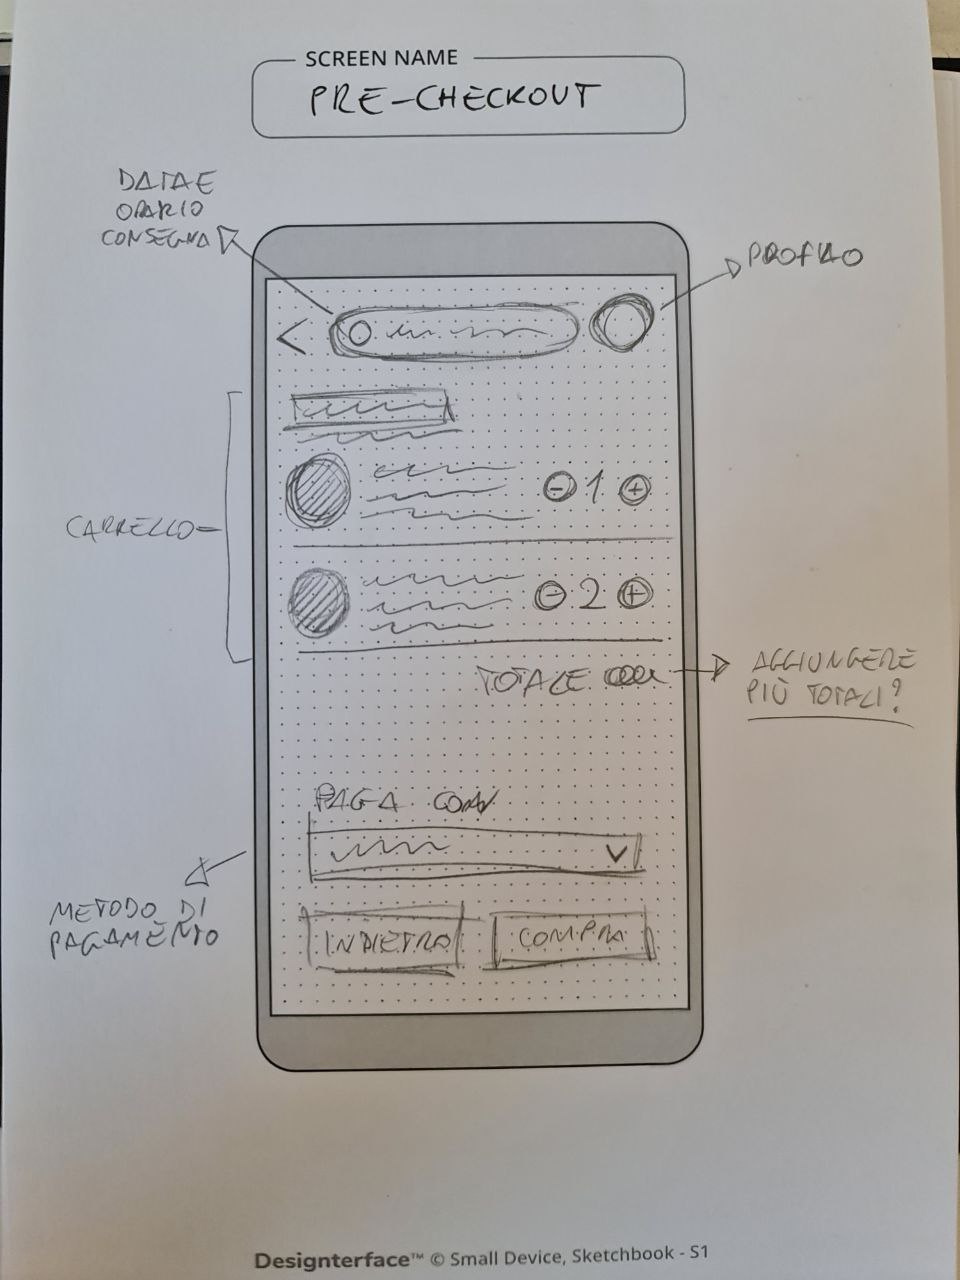 SCREEN NAME
PRE-CHECKOUT
DATA E
ORARIO
CONSEGNA
PROFILO
CARRELLO
1
2
TOTALE
AGGIUNGERE
PIÙ TOTALI?
PAGA CON
METODO DI
PAGAMENTO
INDIETRO
COMPRA
Designterface™ © Small Device, Sketchbook - S1